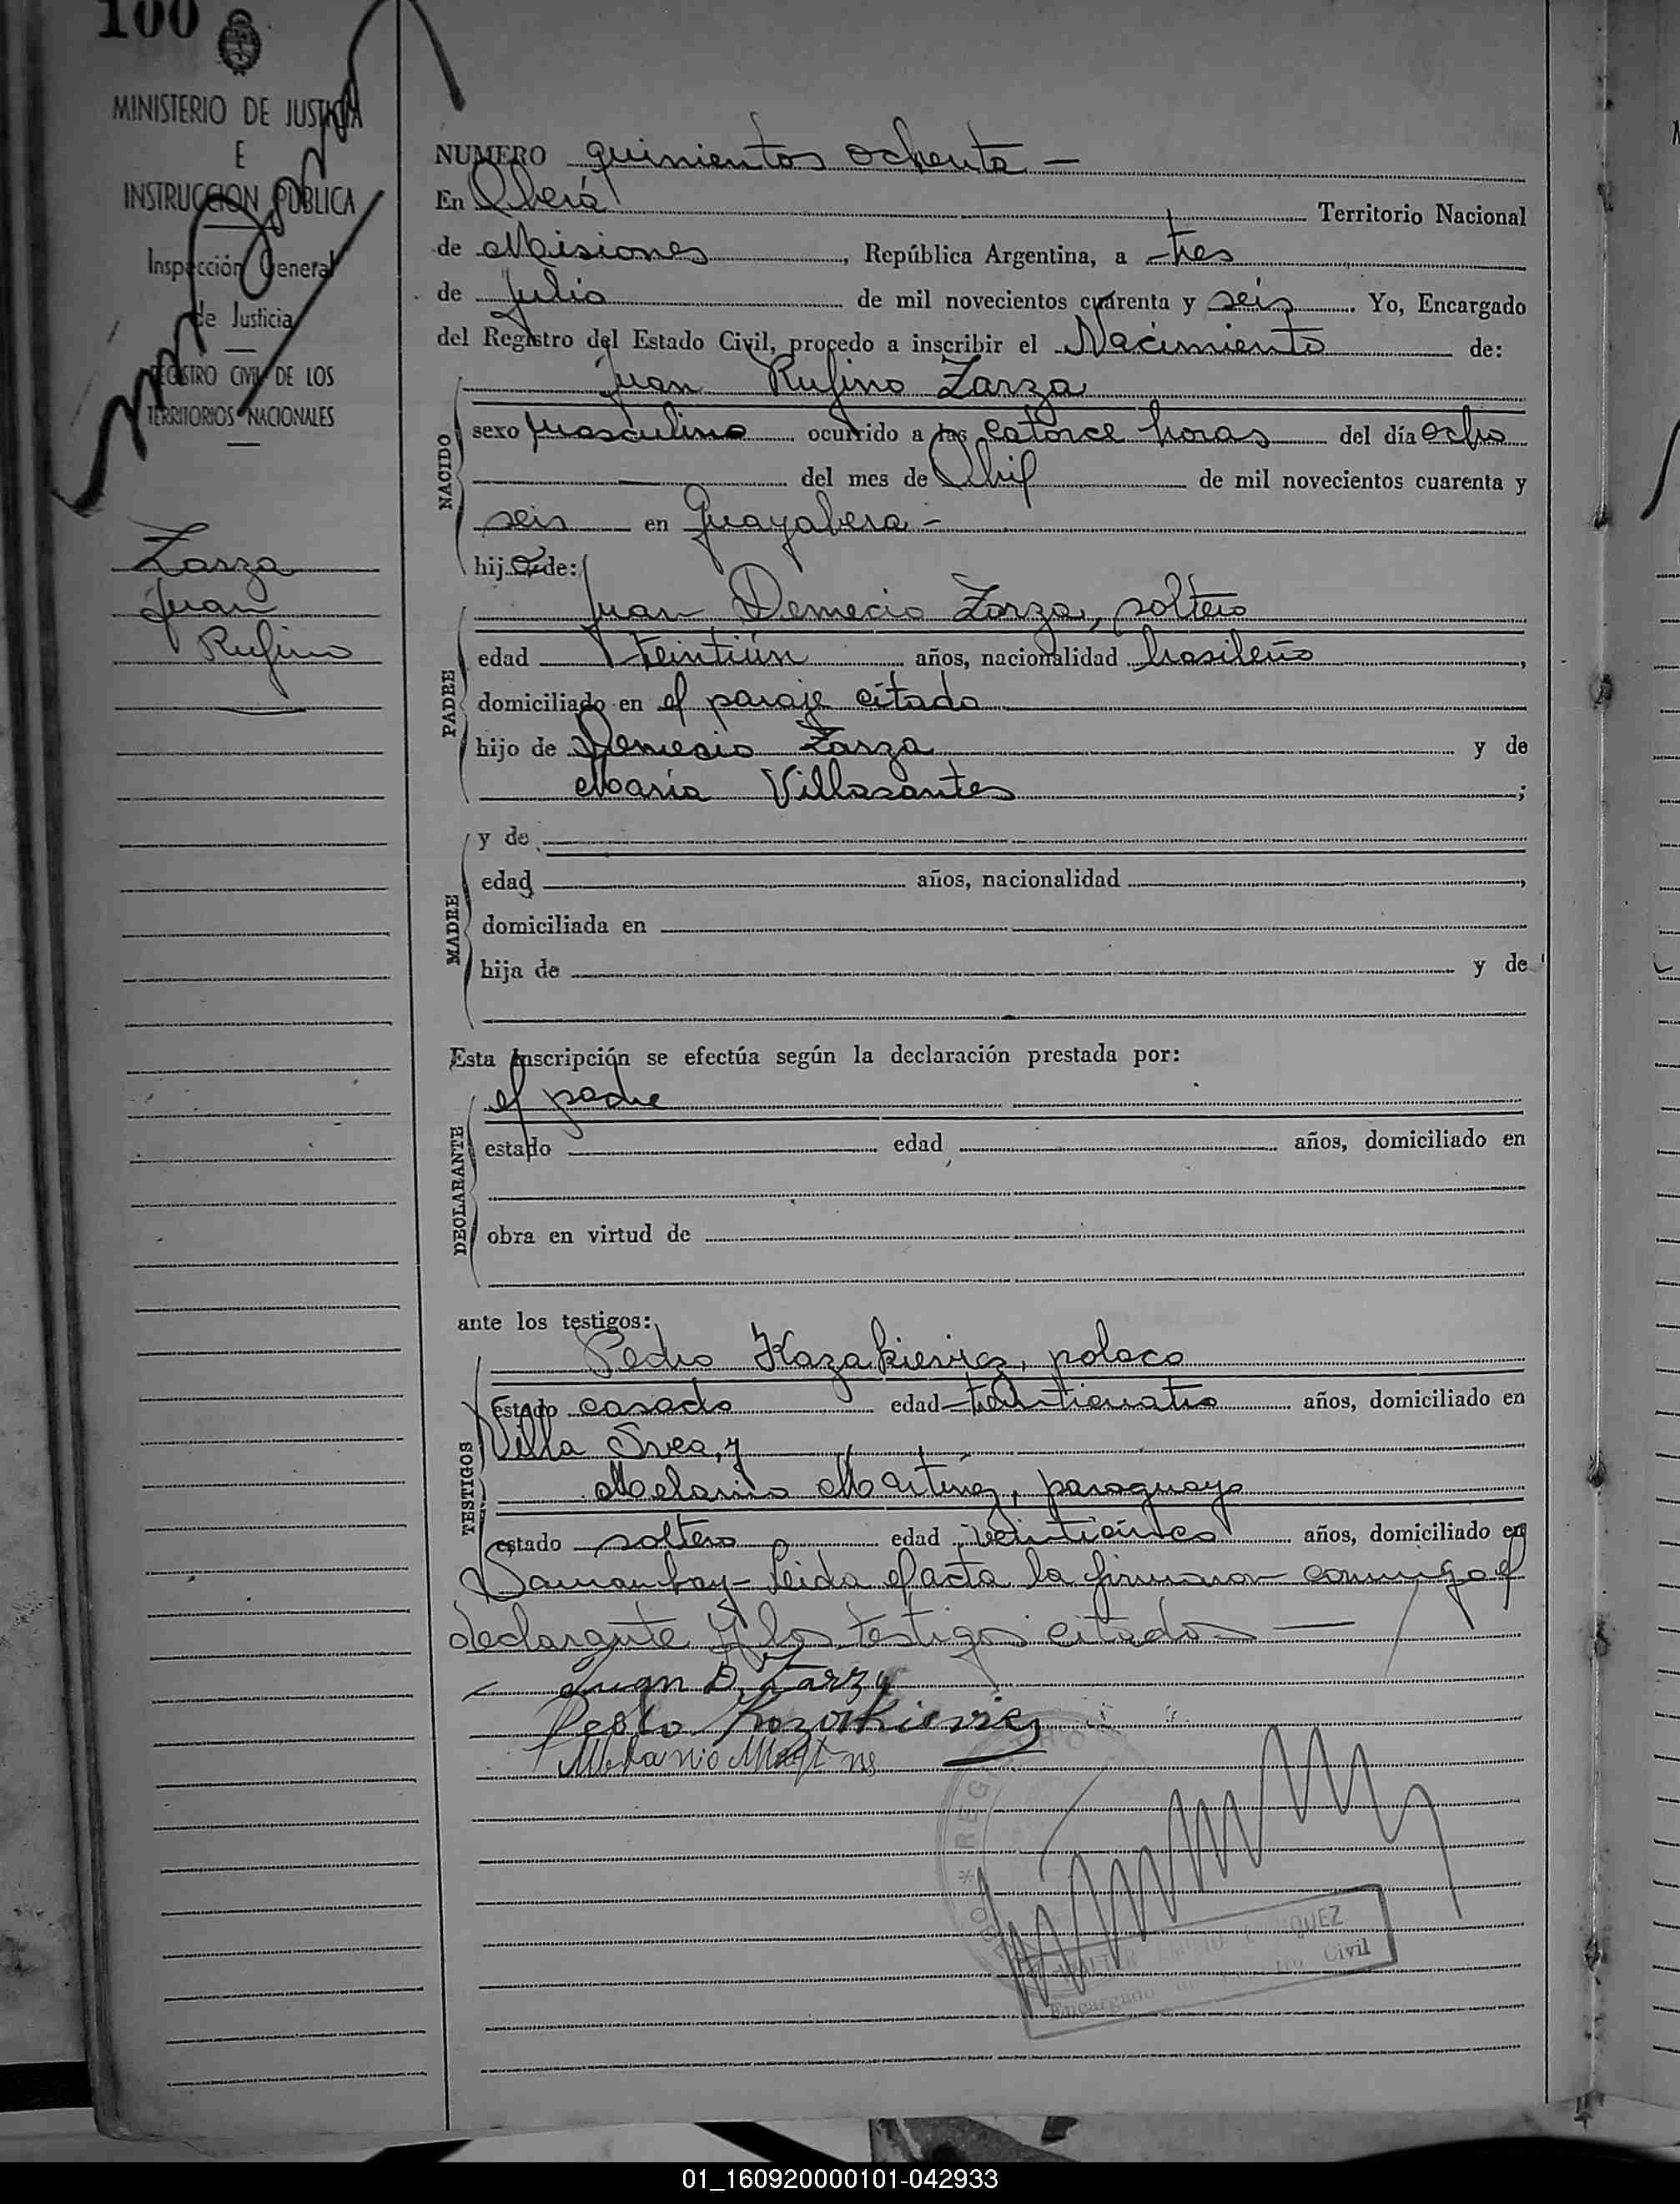 100
MINISTERIO DE JUSTICIA
E
INSTRUCCION PUBLICA
Inspección General
de Justicia
REGISTRO CIVIL DE LOS
TERRITORIOS NACIONALES
Zarza
Juan
Rufino
NUMERO quinientos ochenta —
En Oberá Territorio Nacional
de Misiones, República Argentina, a tres
de Julio de mil novecientos cuarenta y seis. Yo, Encargado
del Registro del Estado Civil, procedo a inscribir el Nacimiento de:
Juan Rufino Zarza
NACIDO
sexo masculino ocurrido a las catorce horas del día ocho
del mes de Abril de mil novecientos cuarenta y
seis en Guayabera -
hijo de:
PADRE
Juan Demecio Zarza, soltero
edad Veintiún años, nacionalidad brasileño,
domiciliado en el paraje citado
hijo de Demecio Zarza y de
María Villasantes;
MADRE
y de
edad años, nacionalidad,
domiciliada en
hija de y de
Esta inscripción se efectúa según la declaración prestada por:
el padre
DECLARANTE
estado edad años, domiciliado en
obra en virtud de
ante los testigos:
TESTIGOS
Pedro Kazakievicz, polaco
estado casado edad años, domiciliado en
Villa Svea, y
Melanio Martínez, paraguayo
estado soltero edad veinticinco años, domiciliado en
Leida el acta la firman conmigo el
declarante y los testigos citados —
Juan D. Zarza
Pedro Kozakievicz
Melanio
REG
QUEZ
Encargado Civil
01_160920000101-042933